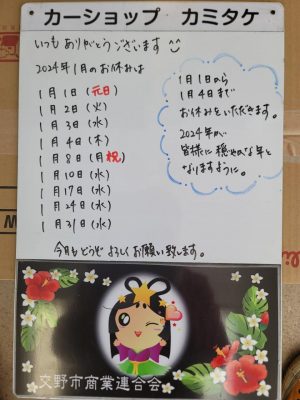 カーショップ カミタケ
いつもありがとうございます
2024年1月のお休みは
1月1日(元日)
1月2日(火)
1月3日(水)
1月4日(木)
1月8日(月祝)
1月10日(水)
1月17日(水)
1月24日(水)
1月31日(水)
1月1日から
1月4日まで
お休みをいただきます。
2024年が
皆様に穏やかな年と
なりますように。
今月もどうぞよろしくお願い致します。
交野市商業連合会